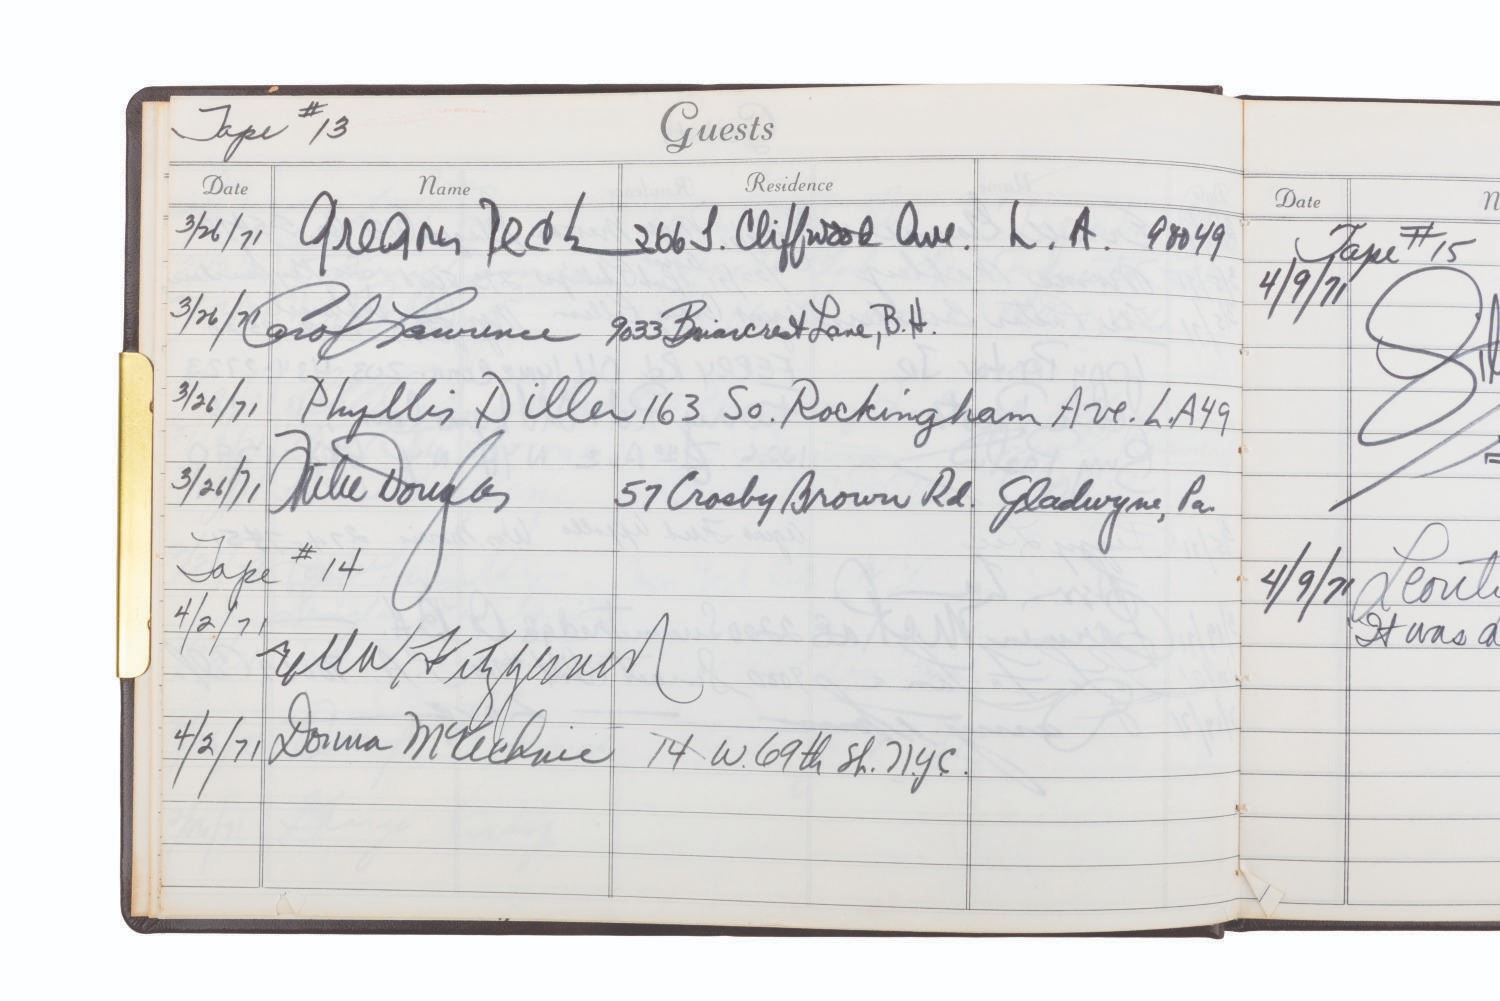 Tape #13
Guests
Date Name Residence
3/26/71 Gregory Peck 266 S. Cliffwood Ave. L. A. 90049
3/26/71 Carol Lawrence 9033 Briarcrest Lane, B.H.
3/26/71 Phyllis Diller 163 So. Rockingham Ave. L.A 49
3/26/71 Mike Douglas 57 Crosby Brown Rd. Gladwyne, Pa.
Tape #14
4/2/71 Ella Fitzgerald
4/2/71 Donna McKechnie 14 W. 69th St. N.Y.C.
Date N
Tape #15
4/9/71
4/9/71 Leonti
It was a